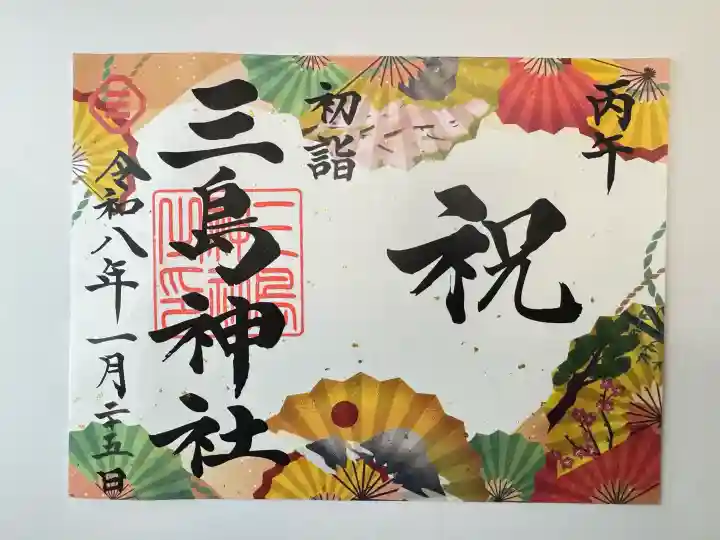 丙午
祝
初詣
三島神社
三島神社之印
三
令和八年一月二十五日